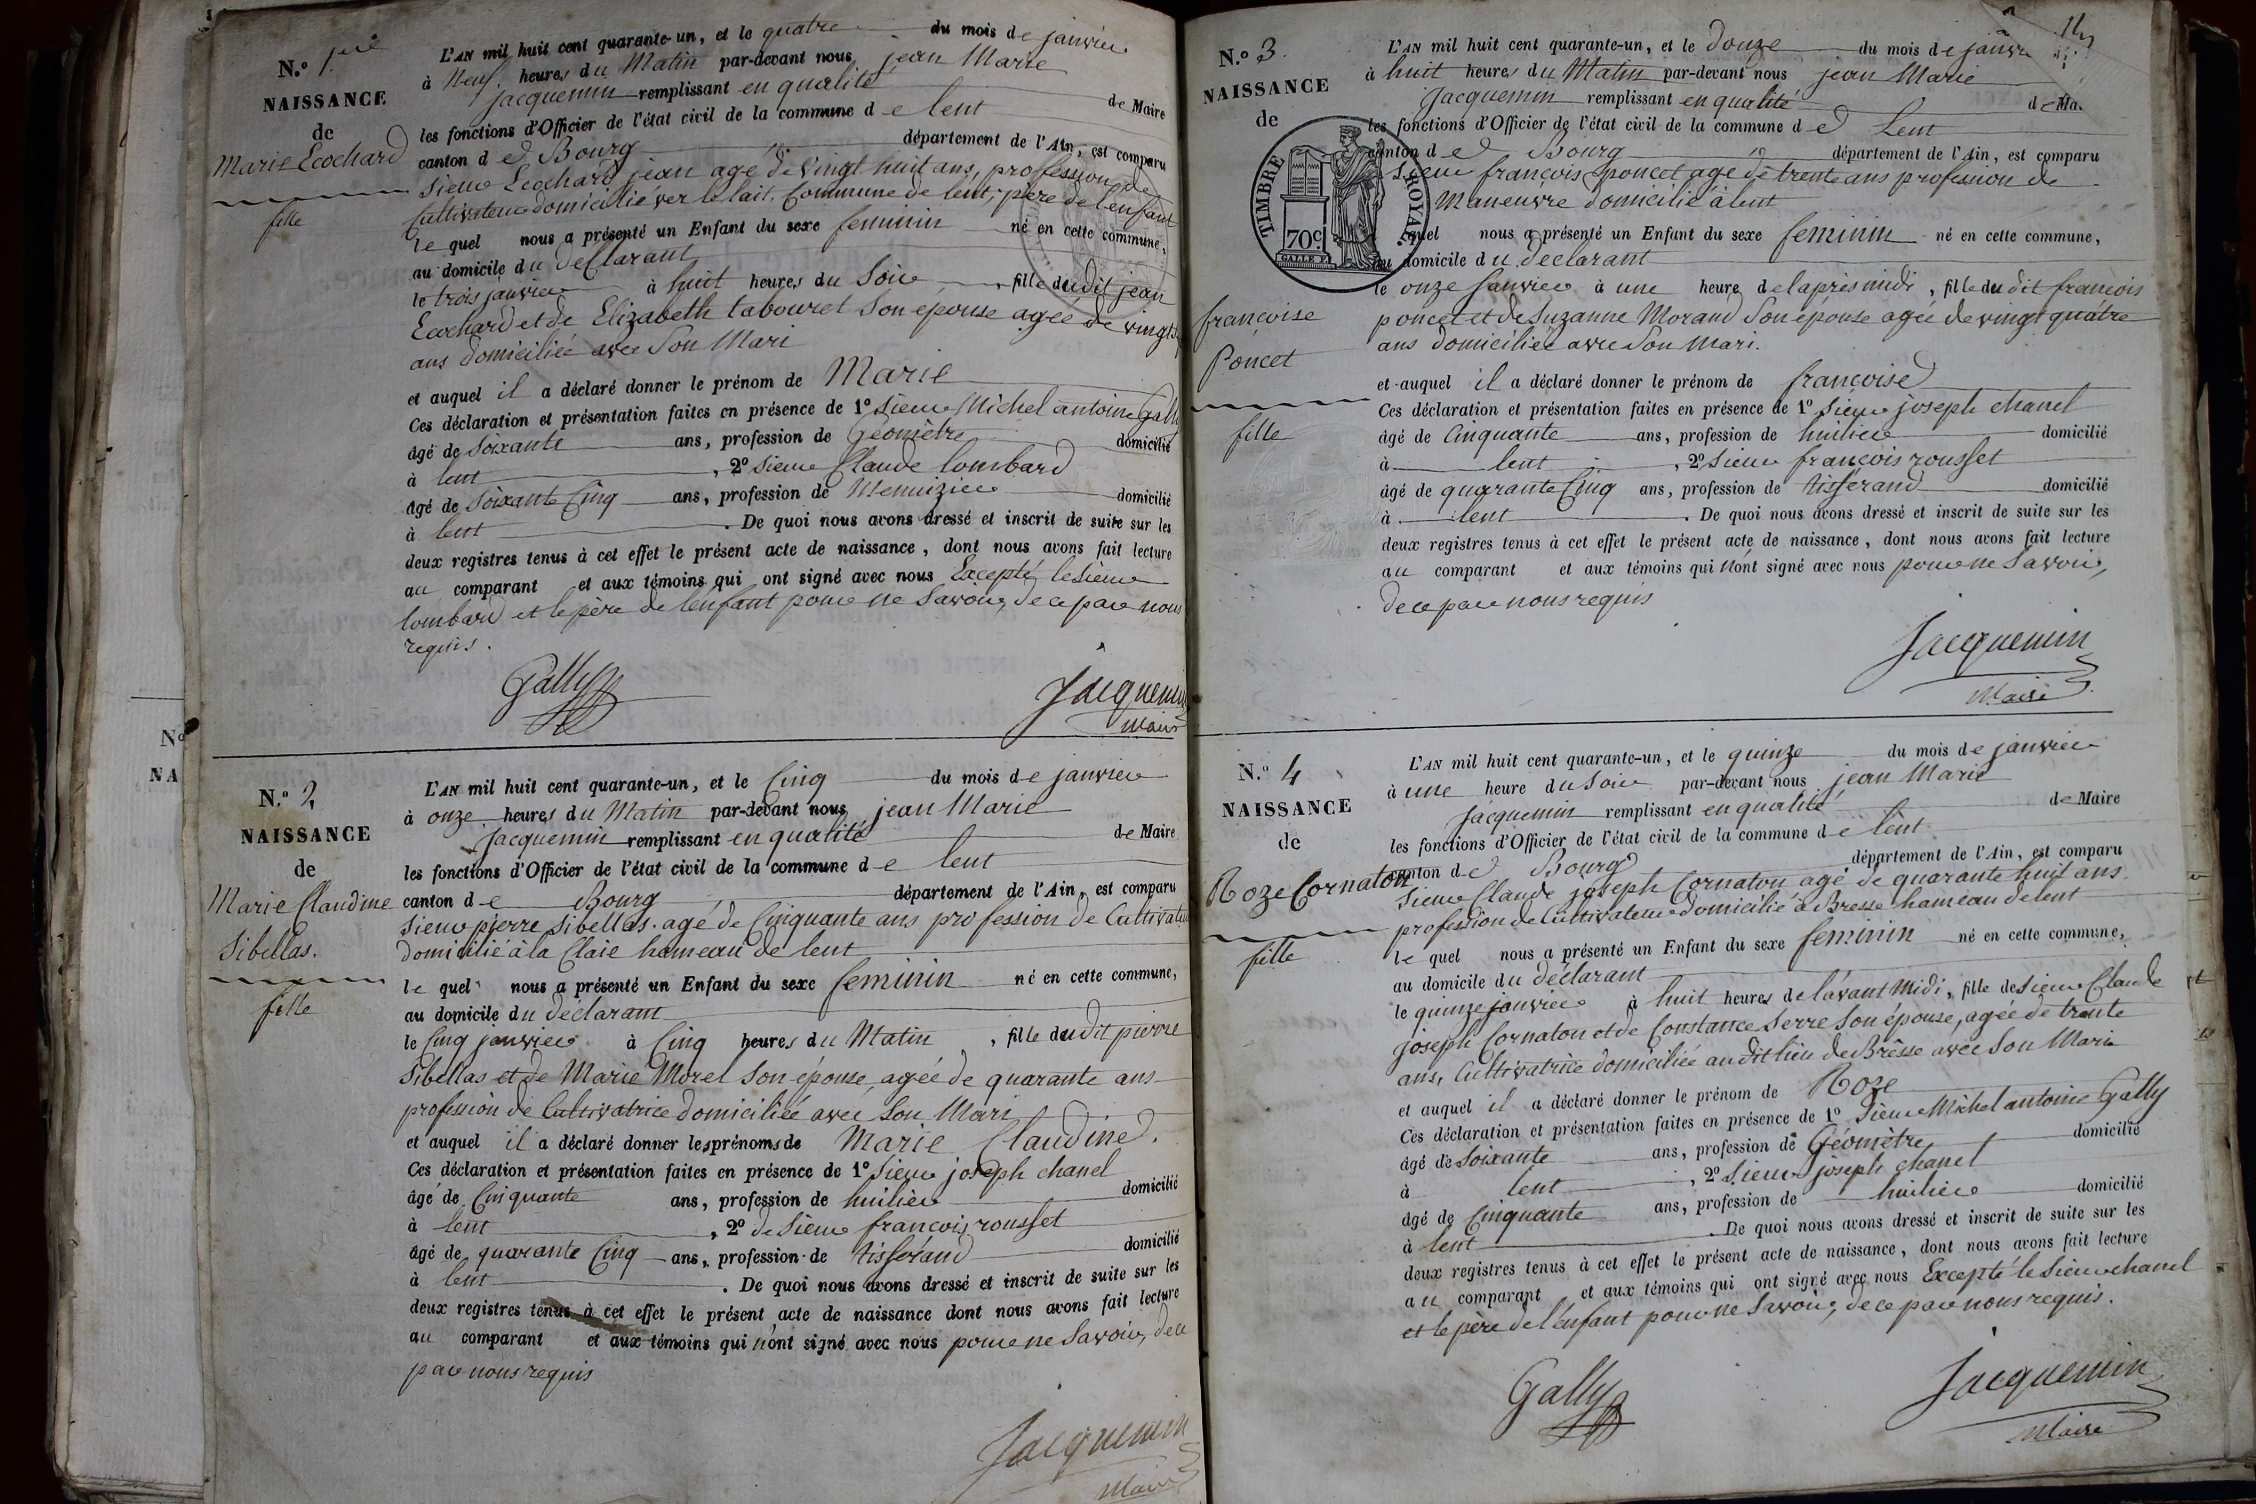 N.o 1.ère
NAISSANCE
de
Marie Ecochard
fille
L'AN mil huit cent quarante-un, et le quatre du mois de janvier
à Neuf heures du Matin par-devant nous jean Marie
jacquemin remplissant en qualité de Maire
les fonctions d'Officier de l'état civil de la commune de lent
canton de Bourg département de l'Ain, est comparu
sieur Ecochard jean agé de vingt huit ans, profession de
Cultivateur domicilié ver le lait, Commune de lent, père de l'enfant
le quel nous a présenté un Enfant du sexe feminin né en cette commune,
au domicile du declarant
le trois janvier à huit heures du Soir, fille du dit jean
Ecochard et de Elizabeth tabouret Son epouse agée de vingt
ans domiciliée avec Son Mari
et auquel il a déclaré donner le prénom de Marie
Ces déclaration et présentation faites en présence de 1o Sieur Michel antoine Gally
âgé de Soixante ans, profession de Géomètre domicilié
à lent, 2o sieur Claude lombard
âgé de Soixante Cinq ans, profession de Menuizier domicilié
à lent. De quoi nous avons dressé et inscrit de suite sur les
deux registres tenus à cet effet le présent acte de naissance, dont nous avons fait lecture
au comparant et aux témoins qui ont signé avec nous Excepté le Sieur
lombard et le père de l'enfant pour ne Savoir, de ce par nous
requis.
Gally
Jacquemin
Maire
N.o 2
NAISSANCE
de
Marie Claudine
Sibellas.
fille
L'AN mil huit cent quarante-un, et le Cinq du mois de janvier
à onze heures du Matin par-devant nous jean Marie
jacquemin remplissant en qualité de Maire
les fonctions d'Officier de l'état civil de la commune de lent
canton de Bourg département de l'Ain, est comparu
Sieur pierre Sibellas. agé de Cinquante ans profession de Cultivateur
domicilié à la Claie hameau de lent
le quel nous a présenté un Enfant du sexe feminin né en cette commune,
au domicile du déclarant
le Cinq janvier à Cinq heures du Matin, fille du dit pierre
Sibellas et de Marie Morel Son épouse agée de quarante ans
profession de Cultivatrice domiciliée avec Son Mari
et auquel il a déclaré donner les prénoms de Marie Claudine.
Ces déclaration et présentation faites en présence de 1o Sieur joseph chanel
âgé de Cinquante ans, profession de huilier domicilié
à lent, 2o de Sieur francois rousset
âgé de quarante Cinq ans, profession de tisserand domicilié
à lent. De quoi nous avons dressé et inscrit de suite sur les
deux registres tenus à cet effet le présent acte de naissance dont nous avons fait lecture
au comparant et aux témoins qui n'ont signé avec nous pour ne Savoir, de ce
par nous requis
Jacquemin
Maire
N.o 3.
NAISSANCE
de
TIMBRE ROYAL
70 c.
françoise
Poncet
fille
L'AN mil huit cent quarante-un, et le douze du mois de janvier
à huit heures du Matin par-devant nous jean Marie
Jacquemin remplissant en qualité de Ma.
les fonctions d'Officier de l'état civil de la commune de Lent
canton de Bourg département de l'Ain, est comparu
Sieur françois poncet agé de trente ans profession de
Maneuvre domicilié à lent
quel nous a présenté un Enfant du sexe feminin né en cette commune,
au domicile du déclarant
le onze Janvier à une heure de l'après midi, fille du dit francois
poncet et de Suzanne Morand Son épouse agée de vingt quatre
ans domiciliée avec Son Mari.
et auquel il a déclaré donner le prénom de francoise
Ces déclaration et présentation faites en présence de 1o Sieur joseph chanel
âgé de Cinquante ans, profession de huilier domicilié
à lent, 2o Sieur françois rousset
âgé de quarante Cinq ans, profession de tisserand domicilié
à lent. De quoi nous avons dressé et inscrit de suite sur les
deux registres tenus à cet effet le présent acte de naissance, dont nous avons fait lecture
au comparant et aux témoins qui n'ont signé avec nous pour ne Savoir,
de ce par nous requis
Jacquemin
Maire
N.o 4
NAISSANCE
de
Roze Cornaton
fille
L'AN mil huit cent quarante-un, et le quinze du mois de janvier
à une heure du Soir par-devant nous jean Marie
jacquemin remplissant en qualité de Maire
les fonctions d'Officier de l'état civil de la commune de lent
canton de Bourg département de l'Ain, est comparu
Sieur Claude joseph Cornaton agé de quarante huit ans
profession de Cultivateur domicilié à Bresse hameau de lent
le quel nous a présenté un Enfant du sexe feminin né en cette commune,
au domicile du déclarant
le quinze janvier à huit heures de l'avant Midi, fille de Sieur Claude
joseph Cornaton et de Constance Serre Son épouse, agée de trente
ans, Cultivatrice domiciliée au dit lieu de Bresse avec Son Mari
et auquel il a déclaré donner le prénom de Roze
Ces déclaration et présentation faites en présence de 1o Sieur Michel antoine Gally
âgé de Soixante ans, profession de Géomètre domicilié
à lent, 2o Sieur joseph chanel
âgé de Cinquante ans, profession de huilier domicilié
à lent. De quoi nous avons dressé et inscrit de suite sur les
deux registres tenus à cet effet le présent acte de naissance, dont nous avons fait lecture
au comparant et aux témoins qui ont signé avec nous Excepté le Sieur chanel
et le père de l'Enfant pour ne Savoir, de ce par nous requis.
Gally
Jacquemin
Maire